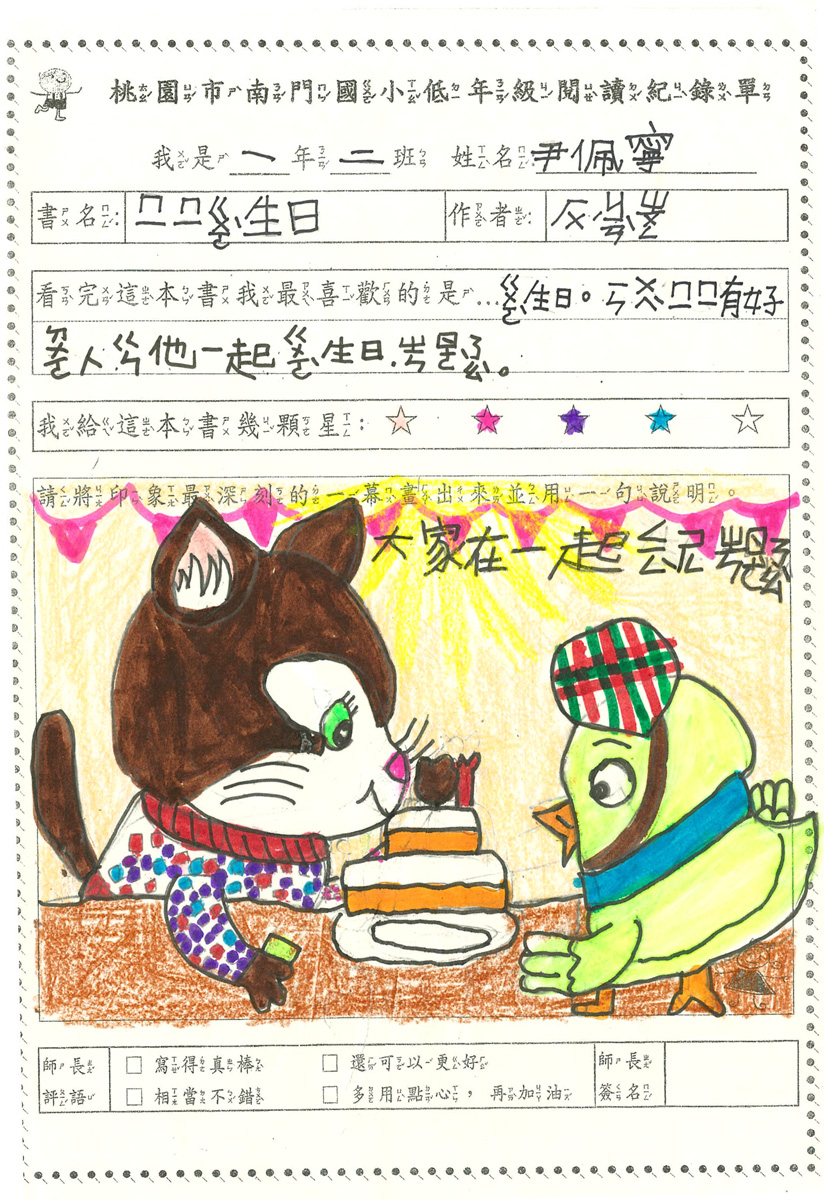 桃園市南門國小低年級閱讀紀錄單
我是一年二班 姓名:尹佩寧
書名: ㄇㄇㄍㄨㄛˋ生日 作者:
看完這本書我最喜歡的是...ㄍㄨㄛˋ生日。ㄇㄇ有好
人ㄍㄣ他一起ㄍㄨㄛˋ生日
我給這本書幾顆星:
請將印象最深刻的一幕畫出來並用一句說明。
大家在一起
師長評語 □ 寫得真棒 □ 還可以更好 師長簽名
□ 相當不錯 □ 多用點心,再加油